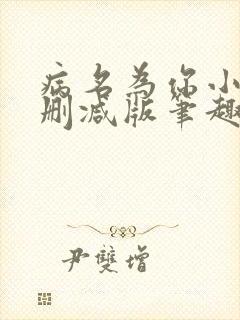 病名为你小
删减版笔趣
尹雙增